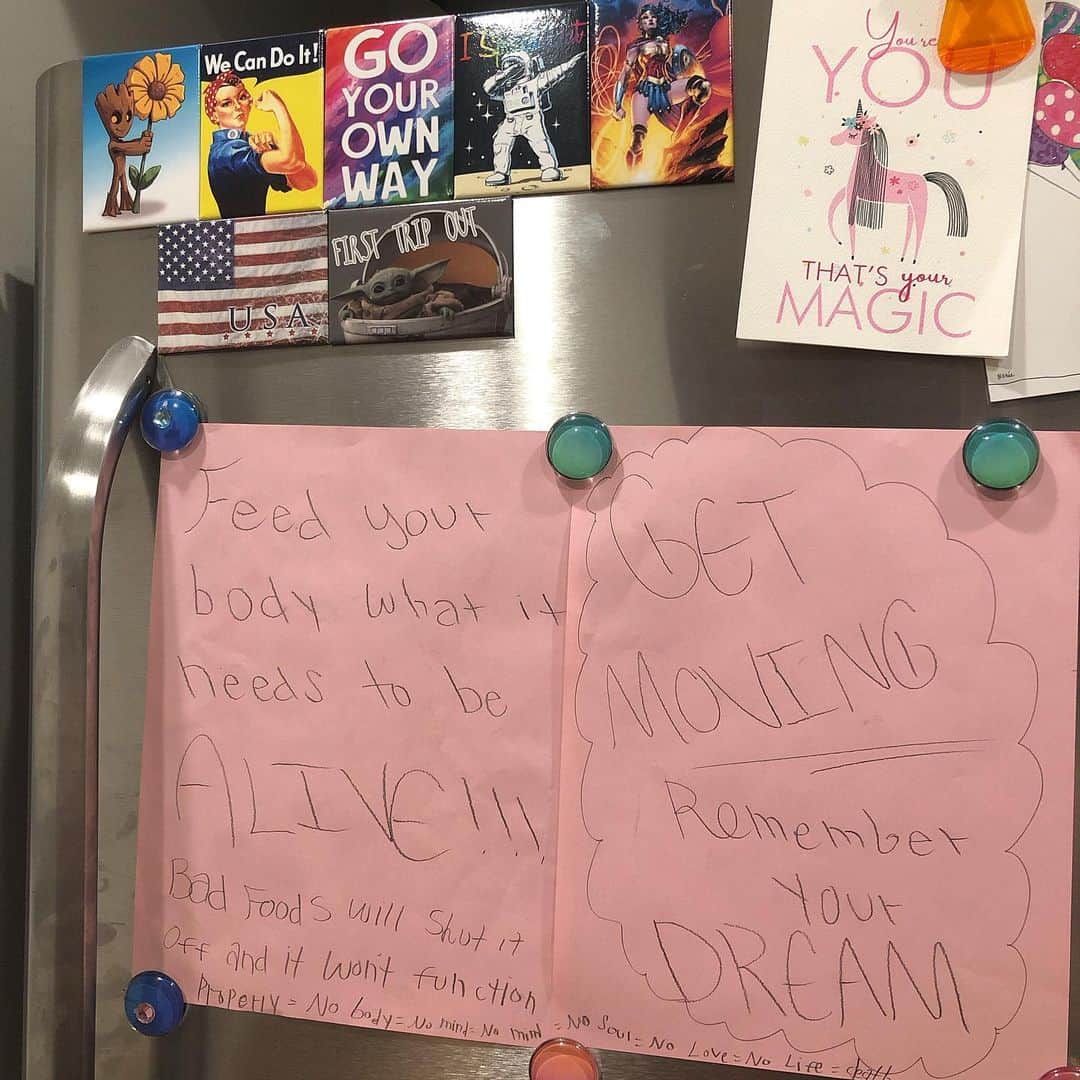 We Can Do It!
GO
YOUR
OWN
WAY
You're
YOU
THAT'S your
MAGIC
USA
FIRST TRIP OUT
Feed your
body what it
needs to be
ALIVE!!!
Bad Foods will shut it
Off and it won't function
Properly = No body = No mind = No mind = No Soul = No Love = No Life = death
GET
MOVING
Remember
Your
DREAM